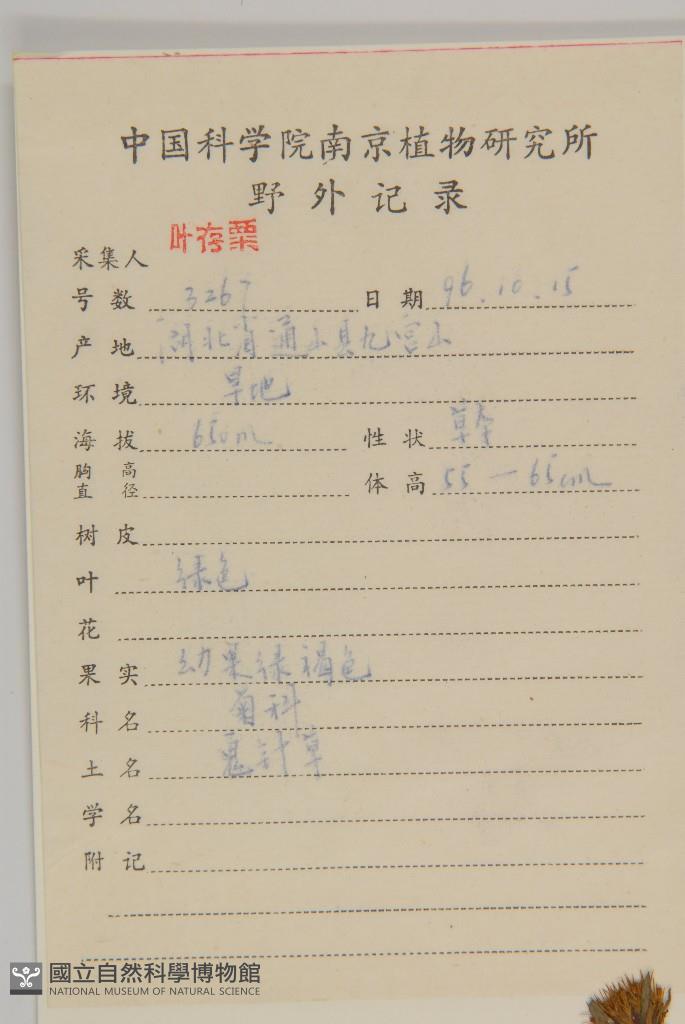 中国科学院南京植物研究所
野外记录
采集人 叶存粟
号数 3267 日期 96.10.15
产地 湖北省通山县九宫山
环境 旱地
海拔 650m 性状 草本
胸高直径 体高 55—65cm
树皮
叶 绿色
花
果实 幼果绿褐色
科名 菊科
土名 鬼针草
学名
附记
國立自然科學博物館
NATIONAL MUSEUM OF NATURAL SCIENCE